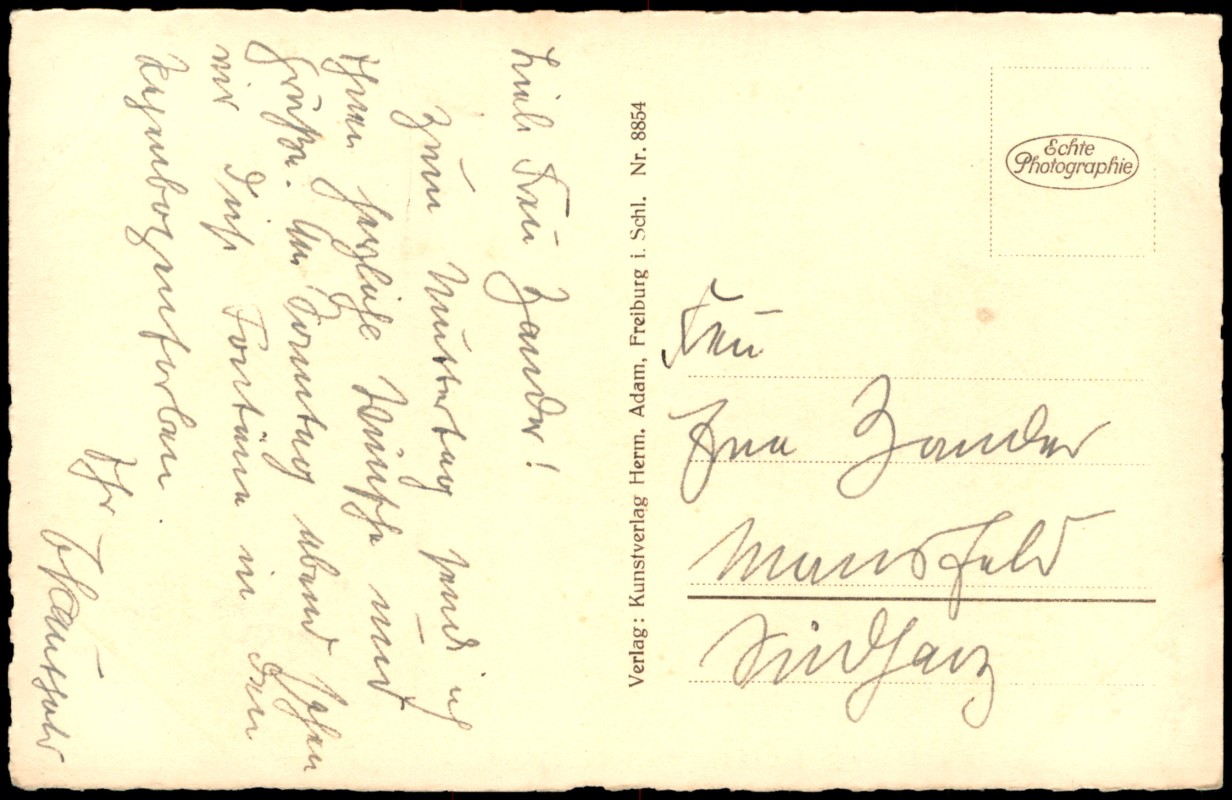 Liebe Frau Zander!
Zum Muttertag send ich
Ihnen herzliche Wünsche und
Grüße. Am Sonntag abend sahen
wir die Fontäne in den
Regenbogenfarben.
Ihr
Verlag: Kunstverlag Herm. Adam, Freiburg i. Schl. Nr. 8854
Echte
Photographie
Frau
Zander
Mansfeld
Südharz